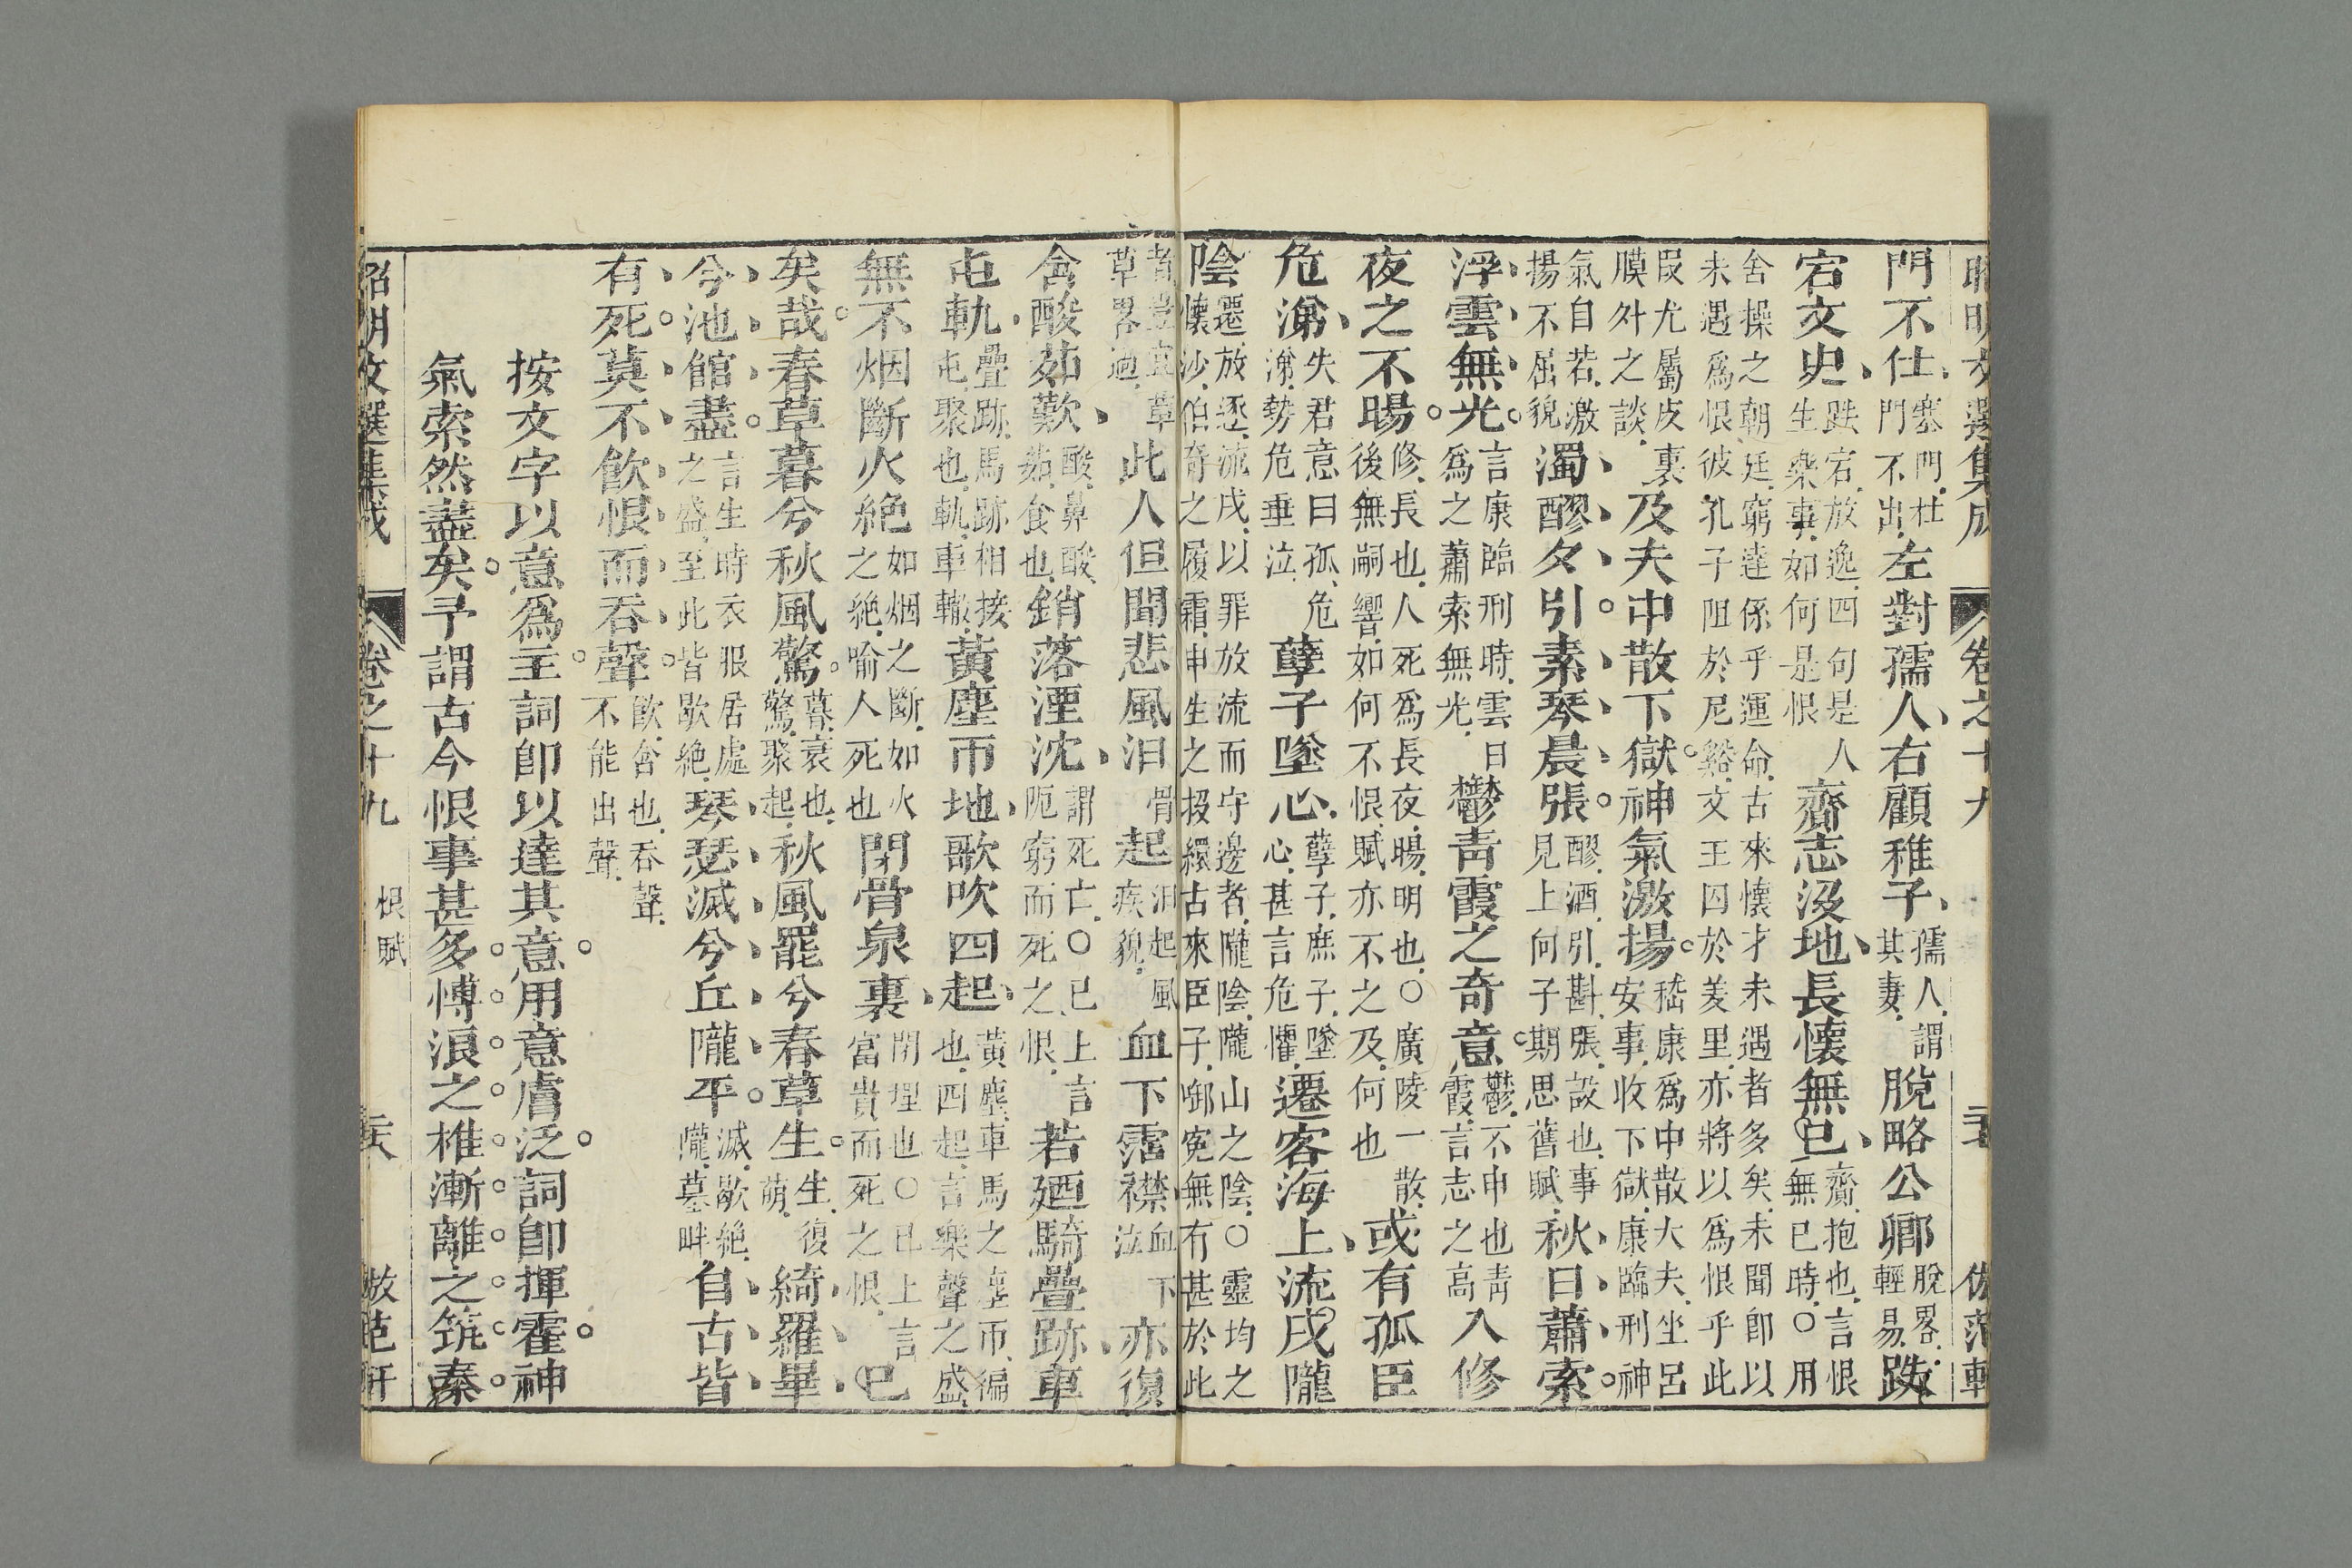 昭明文選集成　卷之十九　倣范軒
門不仕、塞門.杜門不出.左對孺人、右顧稚子、孺人.謂其妻.脫略公卿脫畧.輕易.跌
宕文史、跌宕.放逸.四句是人生樂事.如何是恨齎志沒地、長懷無已、齎.抱也.言恨無已時.○用
舍操之朝廷.窮達係乎運命.古來懷才未遇者多矣.未聞卽以未遇爲恨.彼孔子阻於尼谿.文王囚於羑里.亦將以爲恨乎此
叚尤屬皮裏膜外之談.及夫中散下獄。神氣激揚。嵇康爲中散大夫.坐呂安事.收下獄.康臨刑神
氣自若.激揚不屈貌濁醪夕引。素琴晨張。醪.酒.引.斟.張.設也.事見上何子期思舊賦.秋日蕭索。
浮雲無光。言康臨刑時.雲日爲之蕭索無光.鬱青霞之奇意。鬱.不申也青霞.言志之高入修
夜之不暘。修.長也.人死爲長夜.暘.明也.○廣陵一散.後無嗣響.如何不恨.賦亦不之及.何也或有孤臣
危涕、失君意曰孤.危涕.勢危垂泣.孽子墜心、孽子.庶子.墜心.甚言危懼.遷客海上、流戍隴
陰遷.放逐.流戍.以罪放流而守邊者.隴陰.隴山之陰.○靈均之懷沙.伯奇之履霜.申生之投繯.古來臣子.啣寃無有甚於此
者.豈直草草畧過.此人但聞悲風汨骨起汨起.風疾貌.血下霑襟血下泣亦復
含酸茹歎、酸.鼻酸.茹.食也.銷落湮沈、謂死亡.○已上言阨窮而死之恨.若廼騎疊跡、車
屯軌、疊跡.馬跡相接屯聚也.軌.車轍.黃塵帀地、歌吹四起、黃塵.車馬之塵.帀.徧也.四起.言樂聲之盛.
無不烟斷火絕如烟之斷.如火之絕.喻人死也閉骨泉裏、閉埋也○已上言富貴而死之恨.已
矣哉。春草暮兮秋風驚。暮.衰也.驚.聚起.秋風罷兮春草生。生.復萌.綺羅畢
今池館盡。言生時衣服居處之盛.至此皆歇絕.琴瑟滅兮丘隴平。滅.歇絕.隴.墓畔自古皆
有死。莫不飲恨而吞聲。飲.含也.吞聲.不能出聲.
按文字以意爲主。詞卽以達其意。用意膚泛。詞卽揮霍。神
氣索然盡矣。予謂古今恨事甚多。博浪之椎漸離之筑。秦
昭明文選集成　卷之十九　恨賦　倣范軒